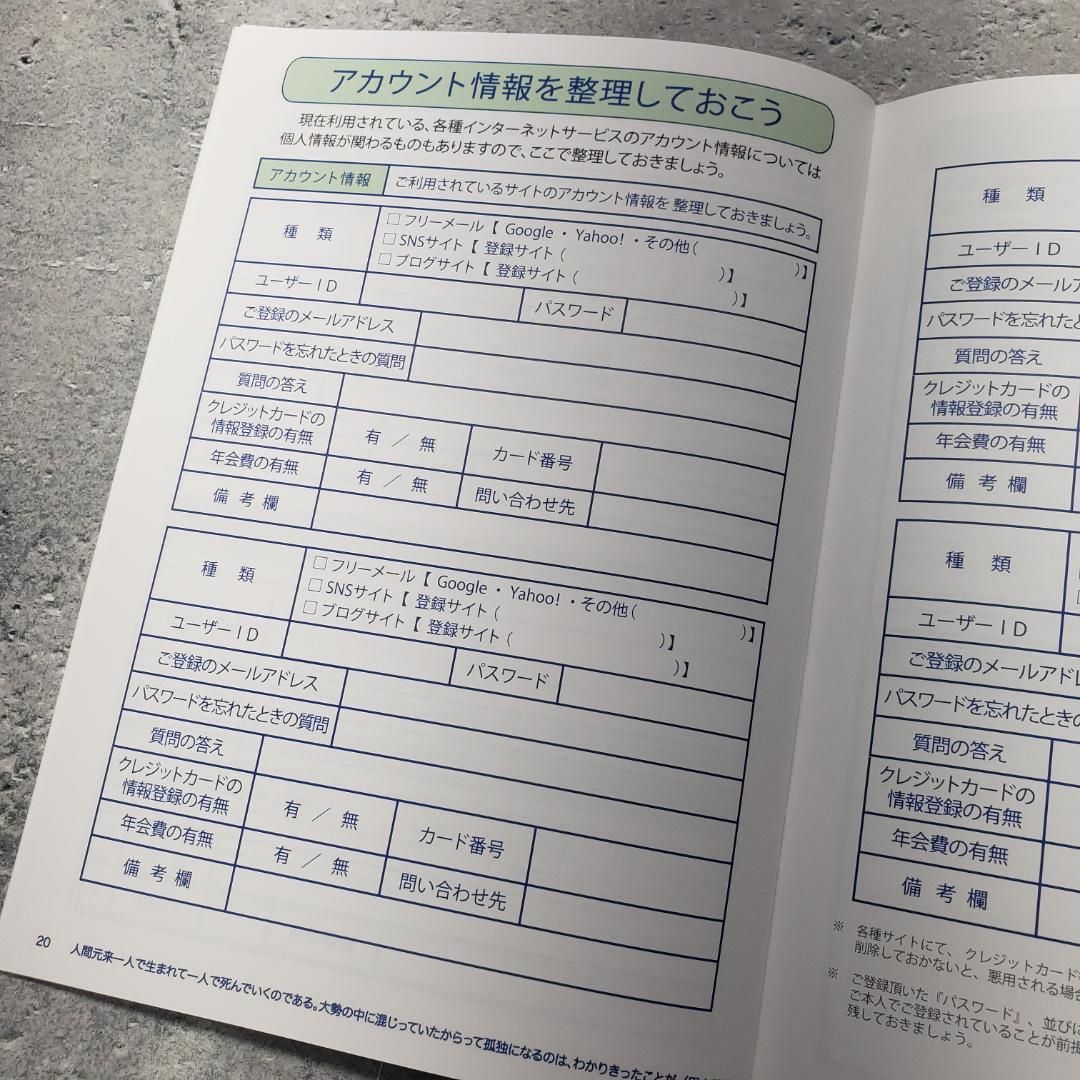 アカウント情報を整理しておこう
現在利用されている、各種インターネットサービスのアカウント情報については
個人情報が関わるものもありますので、ここで整理しておきましょう。
アカウント情報 ご利用されているサイトのアカウント情報を 整理しておきましょう。
種 類
□ フリーメール【 Google ・ Yahoo! ・その他( )】
□ SNSサイト【 登録サイト ( )】
□ ブログサイト【 登録サイト ( )】
ユーザーID パスワード
ご登録のメールアドレス
パスワードを忘れたときの質問
質問の答え
クレジットカードの
情報登録の有無 有 / 無 カード番号
年会費の有無 有 / 無 問い合わせ先
備 考 欄
種 類
□ フリーメール【 Google ・ Yahoo! ・その他( )】
□ SNSサイト【 登録サイト ( )】
□ ブログサイト【 登録サイト ( )】
ユーザーID パスワード
ご登録のメールアドレス
パスワードを忘れたときの質問
質問の答え
クレジットカードの
情報登録の有無 有 / 無 カード番号
年会費の有無 有 / 無 問い合わせ先
備 考 欄
20 人間元来一人で生まれて一人で死んでいくのである。大勢の中に混じっていたからって孤独になるのは、わかりきったことが
種 類
ユーザーID
ご登録のメール
パスワードを忘れたと
質問の答え
クレジットカードの
情報登録の有無
年会費の有無
備 考 欄
種 類
ユーザーID
ご登録のメールアドレ
パスワードを忘れたときの
質問の答え
クレジットカードの
情報登録の有無
年会費の有無
備 考 欄
※ 各種サイトにて、クレジットカード
削除しておかないと、悪用される場合
※ ご登録頂いた『パスワード』、並びに
ご本人でご登録されていることが前提
残しておきましょう。